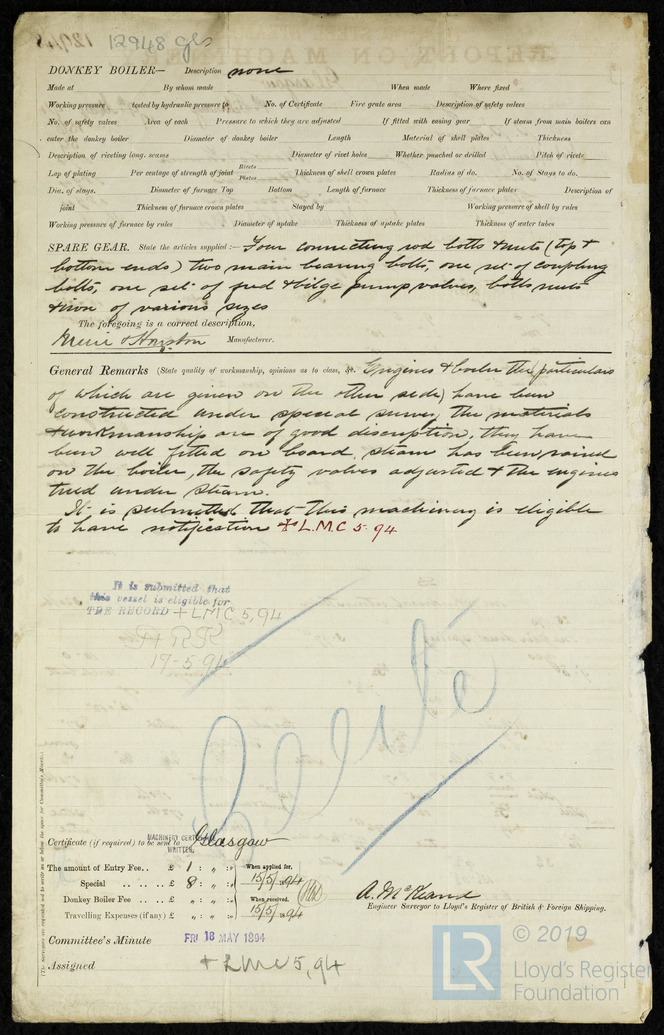 12948 gls
DONKEY BOILER— Description none
Made at By whom made When made Where fixed
Working pressure tested by hydraulic pressure to No. of Certificate Fire grate area Description of safety valves
No. of safety valves Area of each Pressure to which they are adjusted If fitted with easing gear If steam from main boilers can
enter the donkey boiler Diameter of donkey boiler Length Material of shell plates Thickness
Description of riveting long. seams Diameter of rivet holes Whether punched or drilled Pitch of rivets
Lap of plating Per centage of strength of joint Rivets Plates Thickness of shell crown plates Radius of do. No. of Stays to do.
Dia. of stays. Diameter of furnace Top Bottom Length of furnace Thickness of furnace plates Description of
joint Thickness of furnace crown plates Stayed by Working pressure of shell by rules
Working pressure of furnace by rules Diameter of uptake Thickness of uptake plates Thickness of water tubes
SPARE GEAR. State the articles supplied:— Four connecting rod bolts & nuts (top &
bottom ends) two main bearing bolts, one set of coupling
bolts, one set of feed & bilge pump valves, bolts nuts
& iron of various sizes
The foregoing is a correct description,
Muir & Houston Manufacturer.
General Remarks (State quality of workmanship, opinions as to class, &c. Engines & boiler the particulars
of which are given on the other side) have been
constructed under special survey, the materials
& workmanship are of good discription, they have
been well fitted on board, steam has been raised
on the boiler, the safety valves adjusted & the engines
tried under steam.
It is submitted that this machinery is eligible
to have notification + L.M.C 5.94
It is submitted that
this vessel is eligible for
THE RECORD + LMC 5,94
17-5-94
Certificate (if required) to be sent to Glasgow
MACHINERY CERTIFICATE
WRITTEN.
The amount of Entry Fee.. £ 1 : „ : When applied for,
Special .. .. .. £ 8 : „ : 15/5/1894
Donkey Boiler Fee .. .. £ „ : „ : When received.
Travelling Expenses (if any) £ „ : „ : 15/5/1894
A. McKeand
Engineer Surveyor to Lloyd's Register of British & Foreign Shipping.
Committee's Minute FRI 18 MAY 1894
Assigned + LMC 5,94
© 2019
LR
Lloyd's Register
Foundation